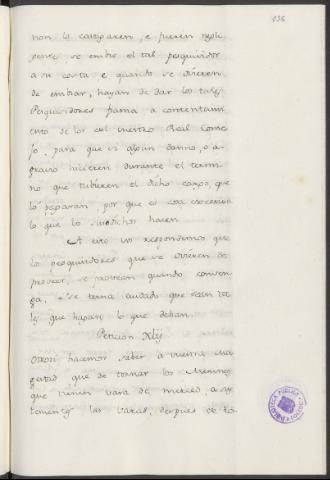 136
non lo castigaren, e fueren negli
gentes, se embie el tal pesquiridor
a su costa e quando se ovieren
de embiar, hayan de dar los tales
Pesquiridores fianza a contentami
ento de los del vuestro Real Conse
jo, para que si algun danno, o a
gravio hicieren durante el termi
no que tubieren el dicho cargo, que
lo paguaran, por que es cosa
lo que los susodichos hacen.
A esto vos respondemos que
los pesquiridores que se ovieren de
proveer, se provean quando conven
ga, e se terna cuidado que sean ta
les que hagan lo que deban.
Peticion XLij.
Otrosi hacemos saber a vuestra Ma
gestad, que de tomar los
que tienen vara de merced, a
las varas, despues de to
BIBLIOTECA PUBLICA
TOLEDO